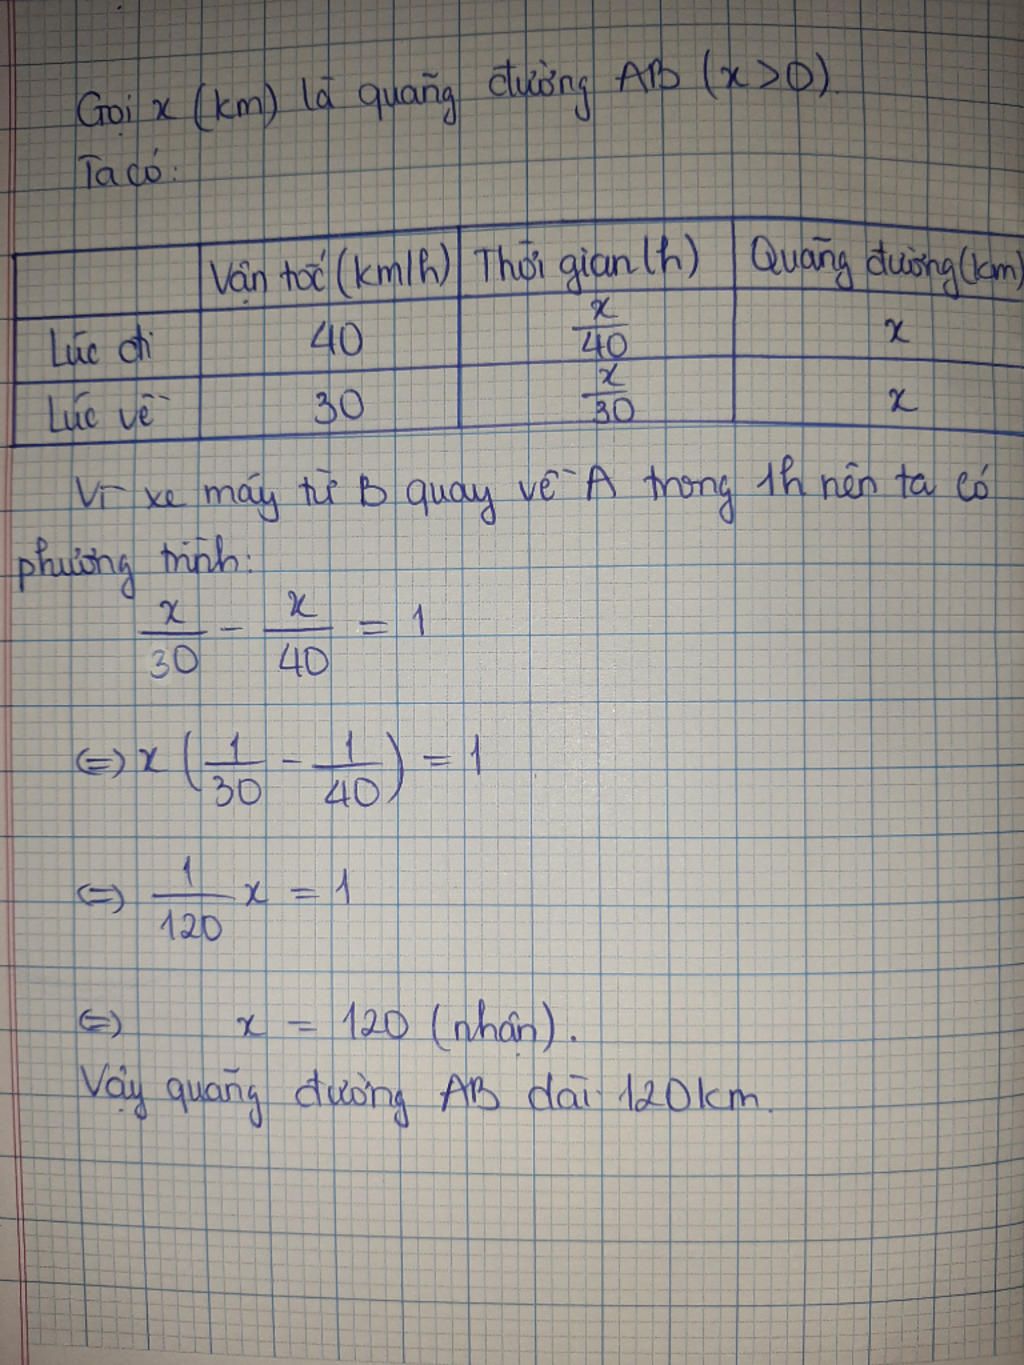 Gọi x (km) là quãng đường AB (x>0).
Ta có:
Vận tốc (km/h) Thời gian (h) Quãng đường (km)
Lúc đi 40 x/40 x
Lúc về 30 x/30 x
Vì xe máy từ B quay về A trong 1h nên ta có
phương trình:
x/30 - x/40 = 1
⇔ x (1/30 - 1/40) = 1
⇔ 1/120 x = 1
⇔ x = 120 (nhận).
Vậy quãng đường AB dài 120km.